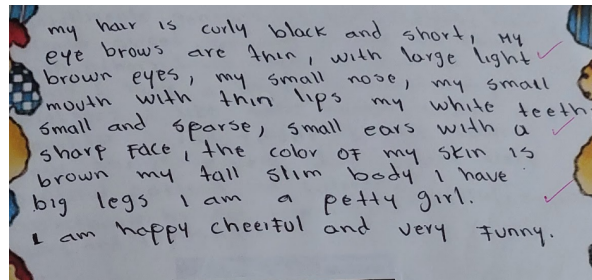 my hair is curly black and short, My
eye brows are thin, with large light
brown eyes, my small nose, my small
mouth with thin lips my white teeth
small and sparse, small ears with a
sharp face, the color of my skin is
brown my tall slim body I have
big legs I am a petty girl.
I am happy cheerful and very funny.